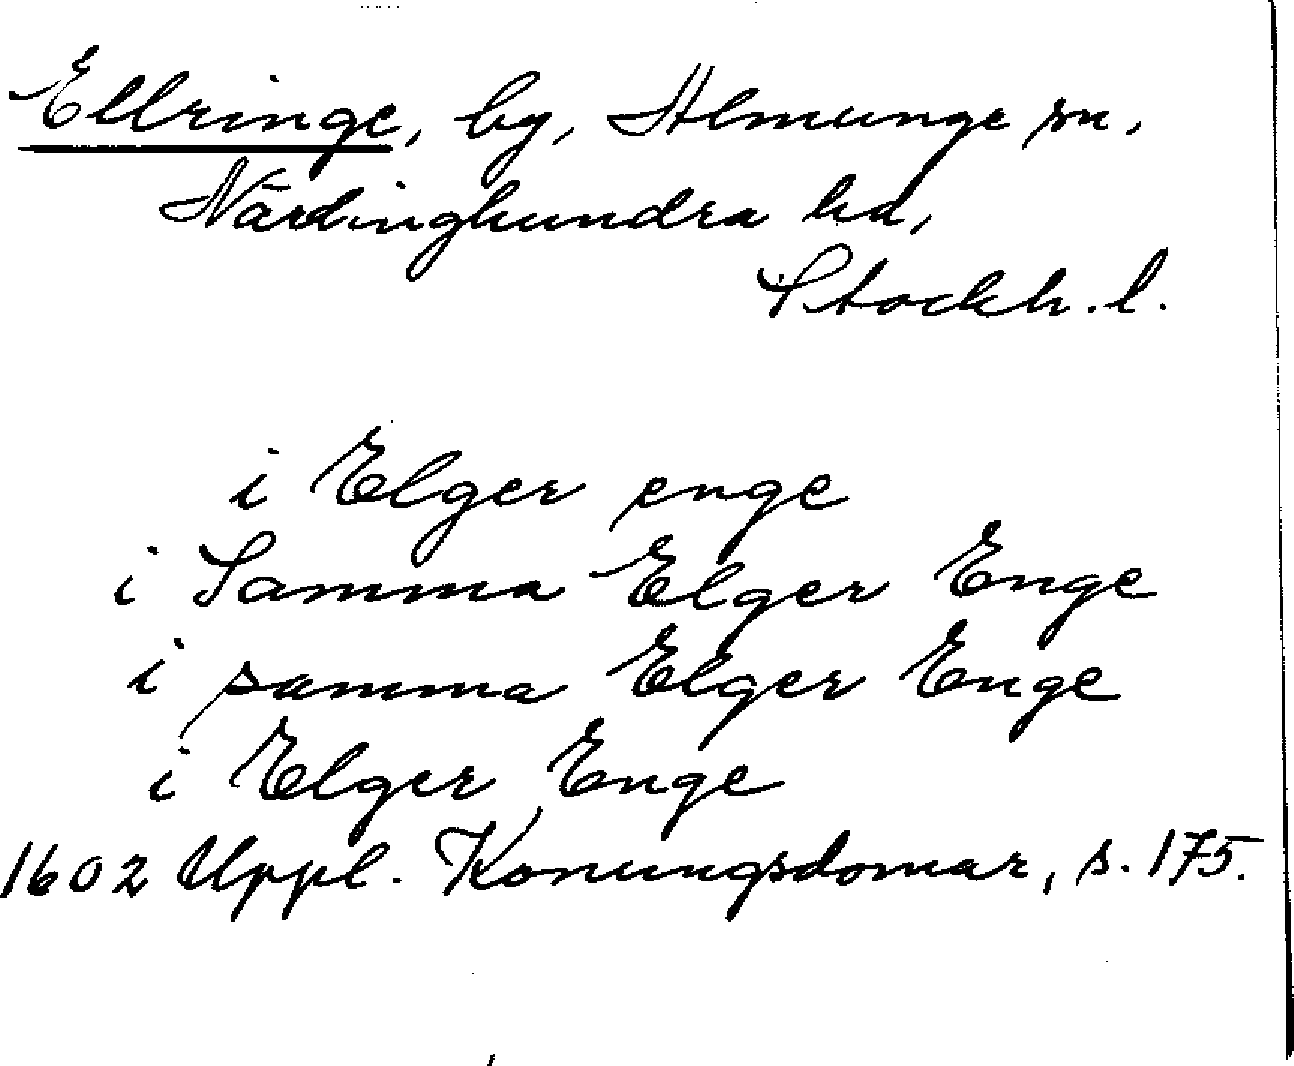 Ellringe, by, Almunge sn,
Närdinghundra hd,
Stockh. l.
i Elger enge
i Samma Elger Enge
i samma Elger Enge
i Elger Enge
1602 Uppl. Konungsdomar, s. 175.